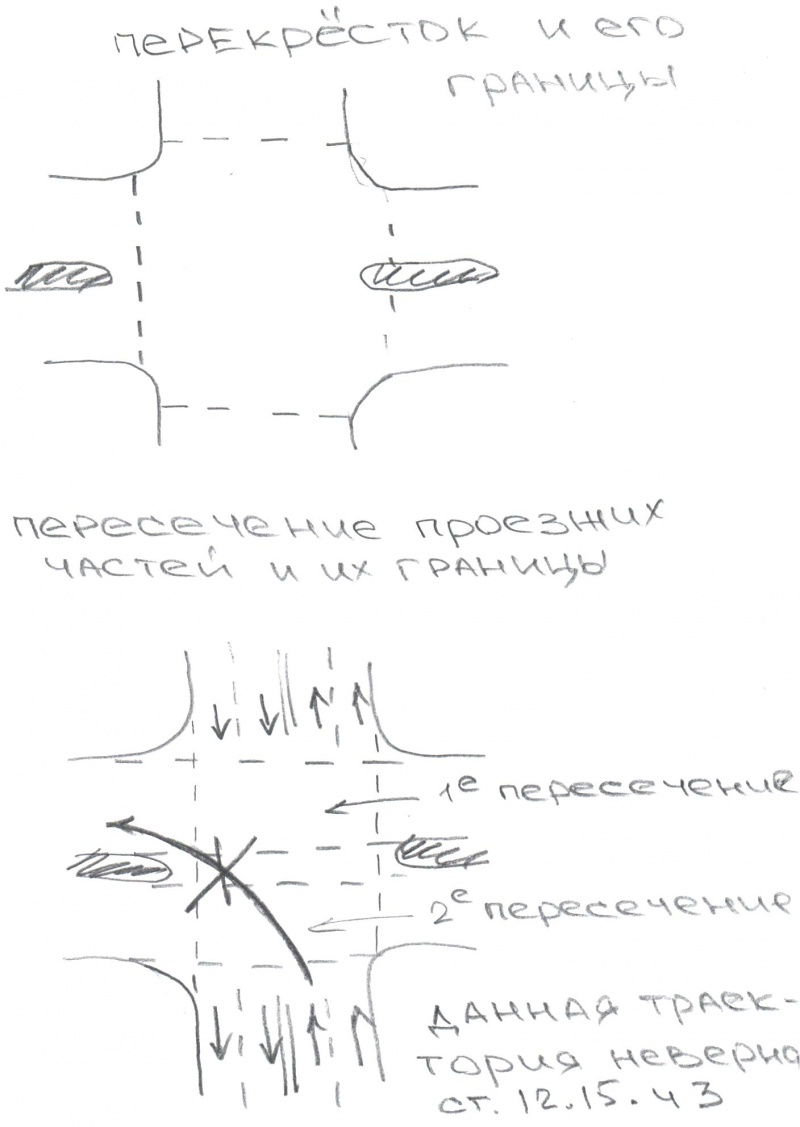 ПЕРЕКРЁСТОК И ЕГО
ГРАНИЦЫ
ПЕРЕСЕЧЕНИЕ ПРОЕЗЖИХ
ЧАСТЕЙ И ИХ ГРАНИЦЫ
1е ПЕРЕСЕЧЕНИЕ
2е ПЕРЕСЕЧЕНИЕ
ДАННАЯ ТРАЕК-
ТОРИЯ НЕВЕРНА
СТ. 12.15. Ч 3